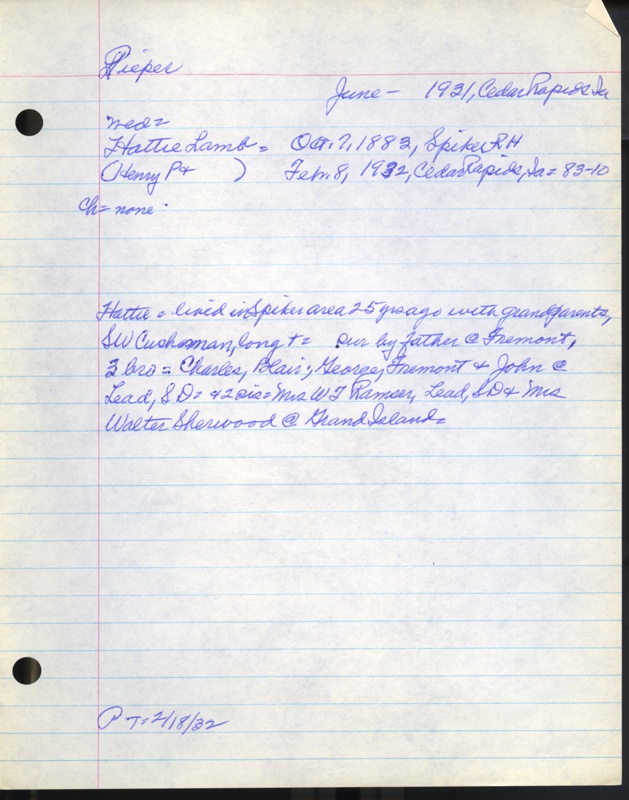 Pieper
June - 1931, Cedar Rapids Ia
med=
Hattie Lamb = Oct. 7, 1883, Spiker RH
(Henry P+ ) Feb. 8, 1932, Cedar Rapids, Ia = 83-10
Ch= none.
Hattie = lived in Spiker area 25 yrs ago with grandparents,
SW Cushman, long t= sur by father @ Fremont,
3 bro = Charles, Blair; George, Fremont + John @
Lead, SD= +2 sis = Mrs W T Ramser, Lead, SD + Mrs
Walter Sherwood @ Grand Island=
PT=2/18/32